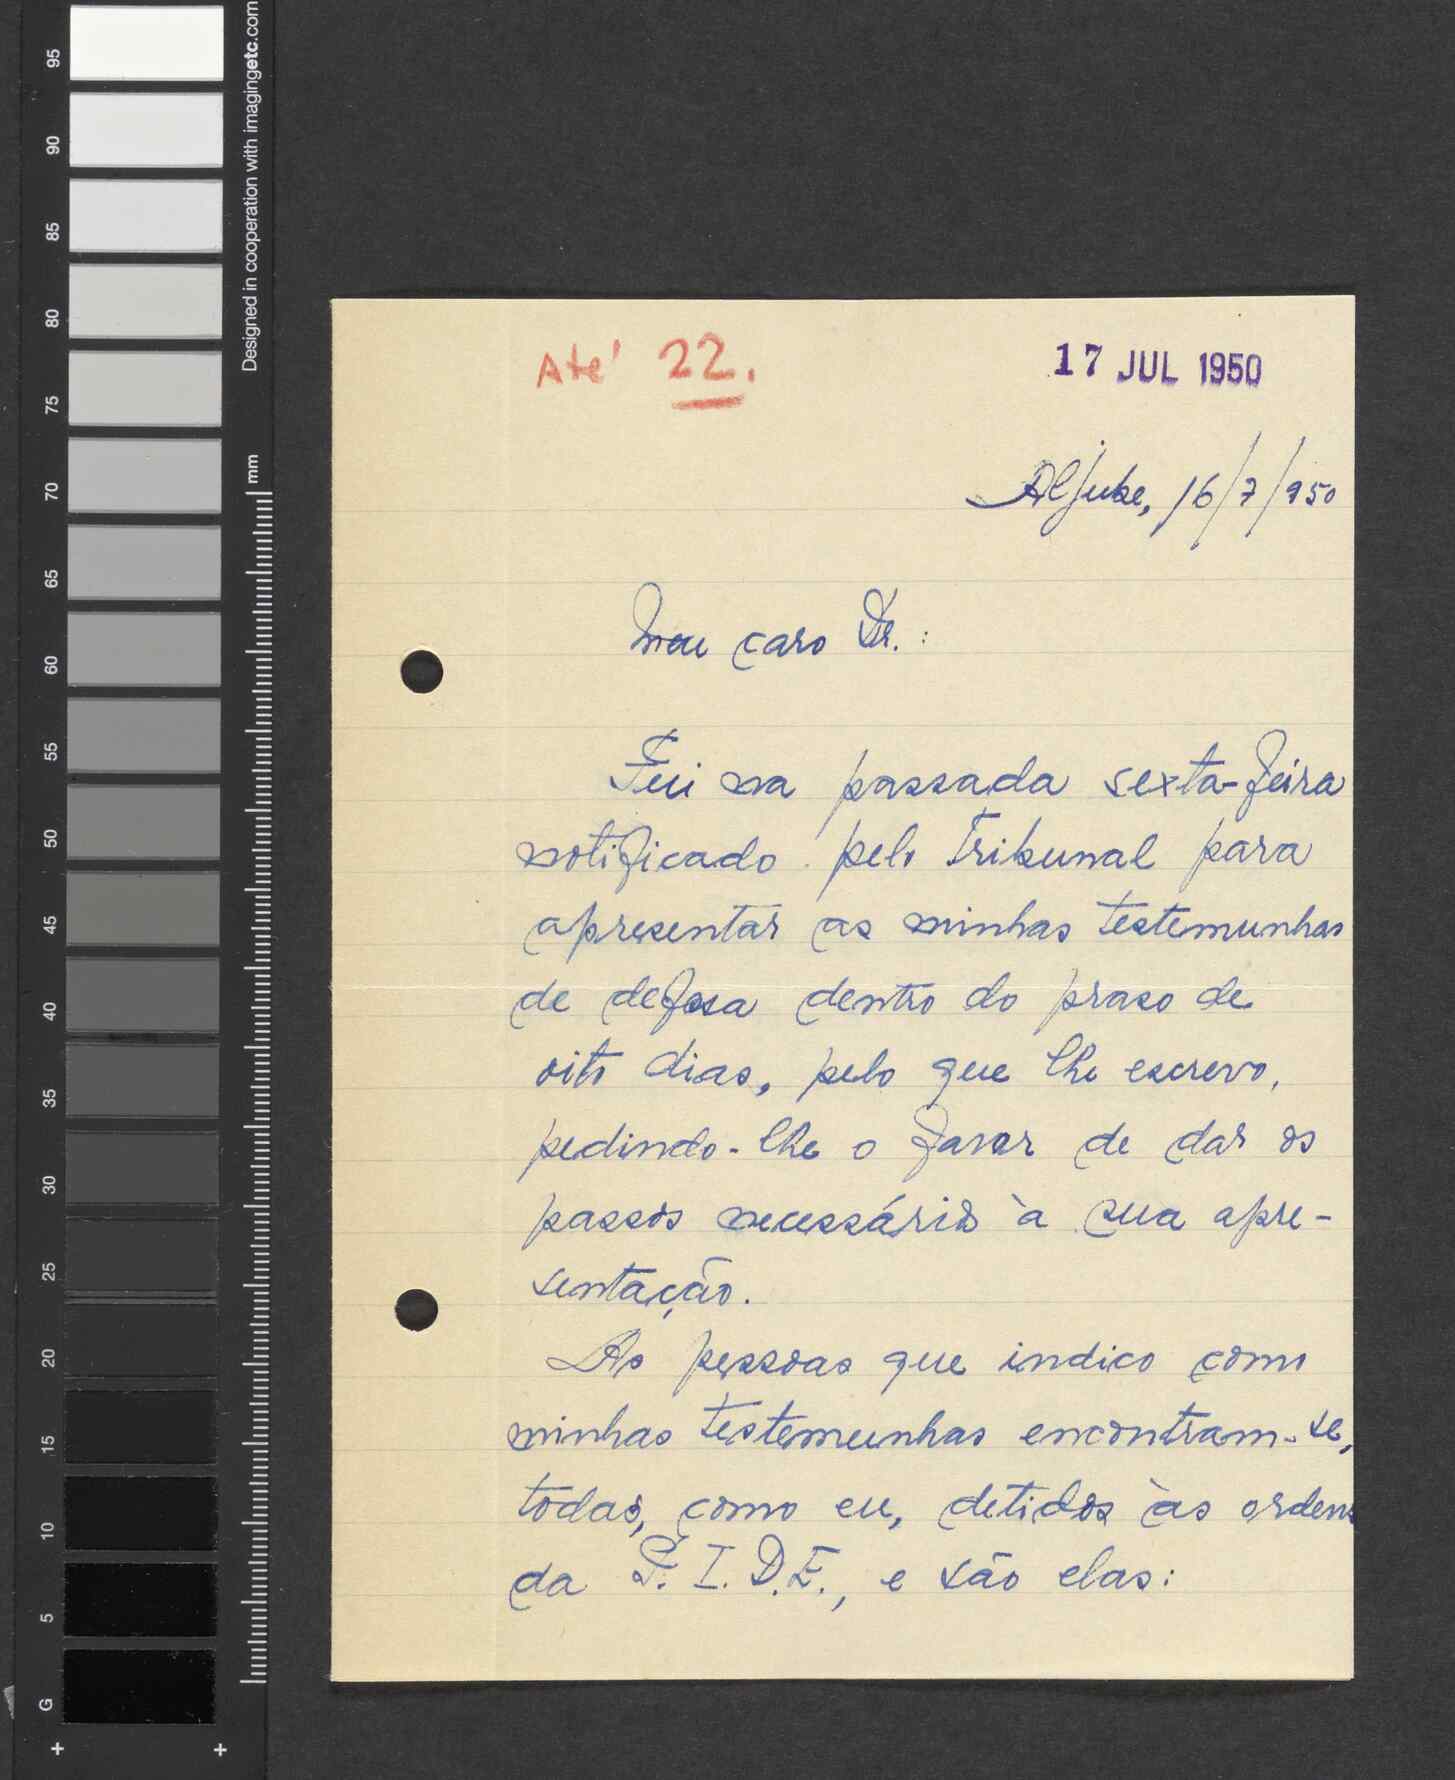 Até 22.
17 JUL 1950
Aljube, 16/7/950
Meu caro Dr.:
Fui na passada sexta-feira
notificado pelo Tribunal para
apresentar as minhas testemunhas
de defesa dentro do praso de
oito dias, pelo que lhe escrevo,
pedindo-lhe o favor de dar os
passos necessários à sua apre-
sentação.
As pessoas que indico como
minhas testemunhas encontram-se,
todas, como eu, detidos às ordens
da P.I.D.E., e são elas:
Designed in cooperation with imagingetc.com
mm
95
90
85
80
75
70
65
60
55
50
45
40
35
30
25
20
15
10
5
G